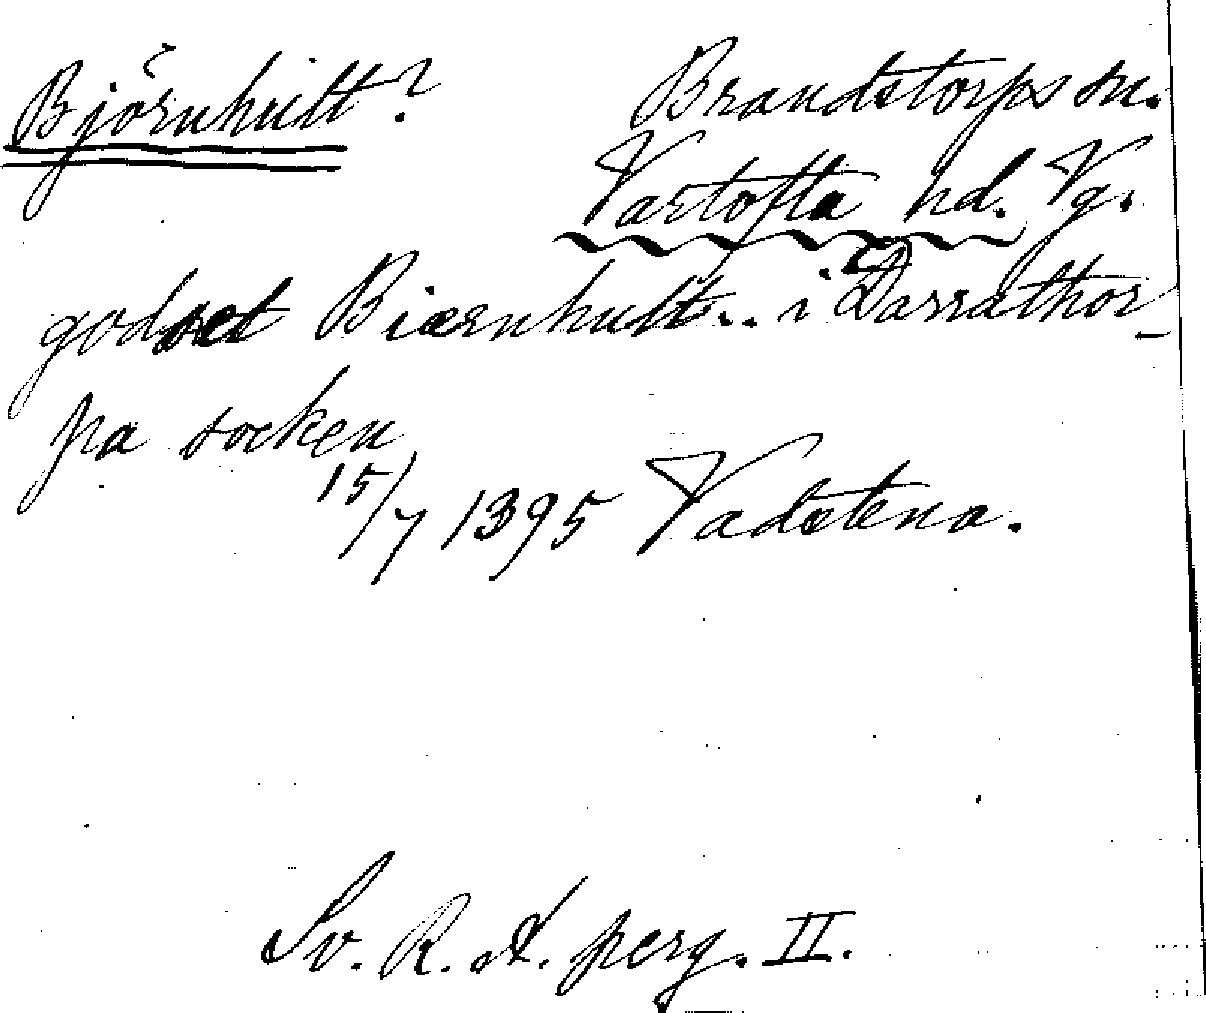 Björnhult? Brandstorps sn.
Vartofta hd. Vg.
godset Biærnhult.. i Darrathor-
pa socken
15/7 1395 Vadstena.
Sv. R. A. perg. II.